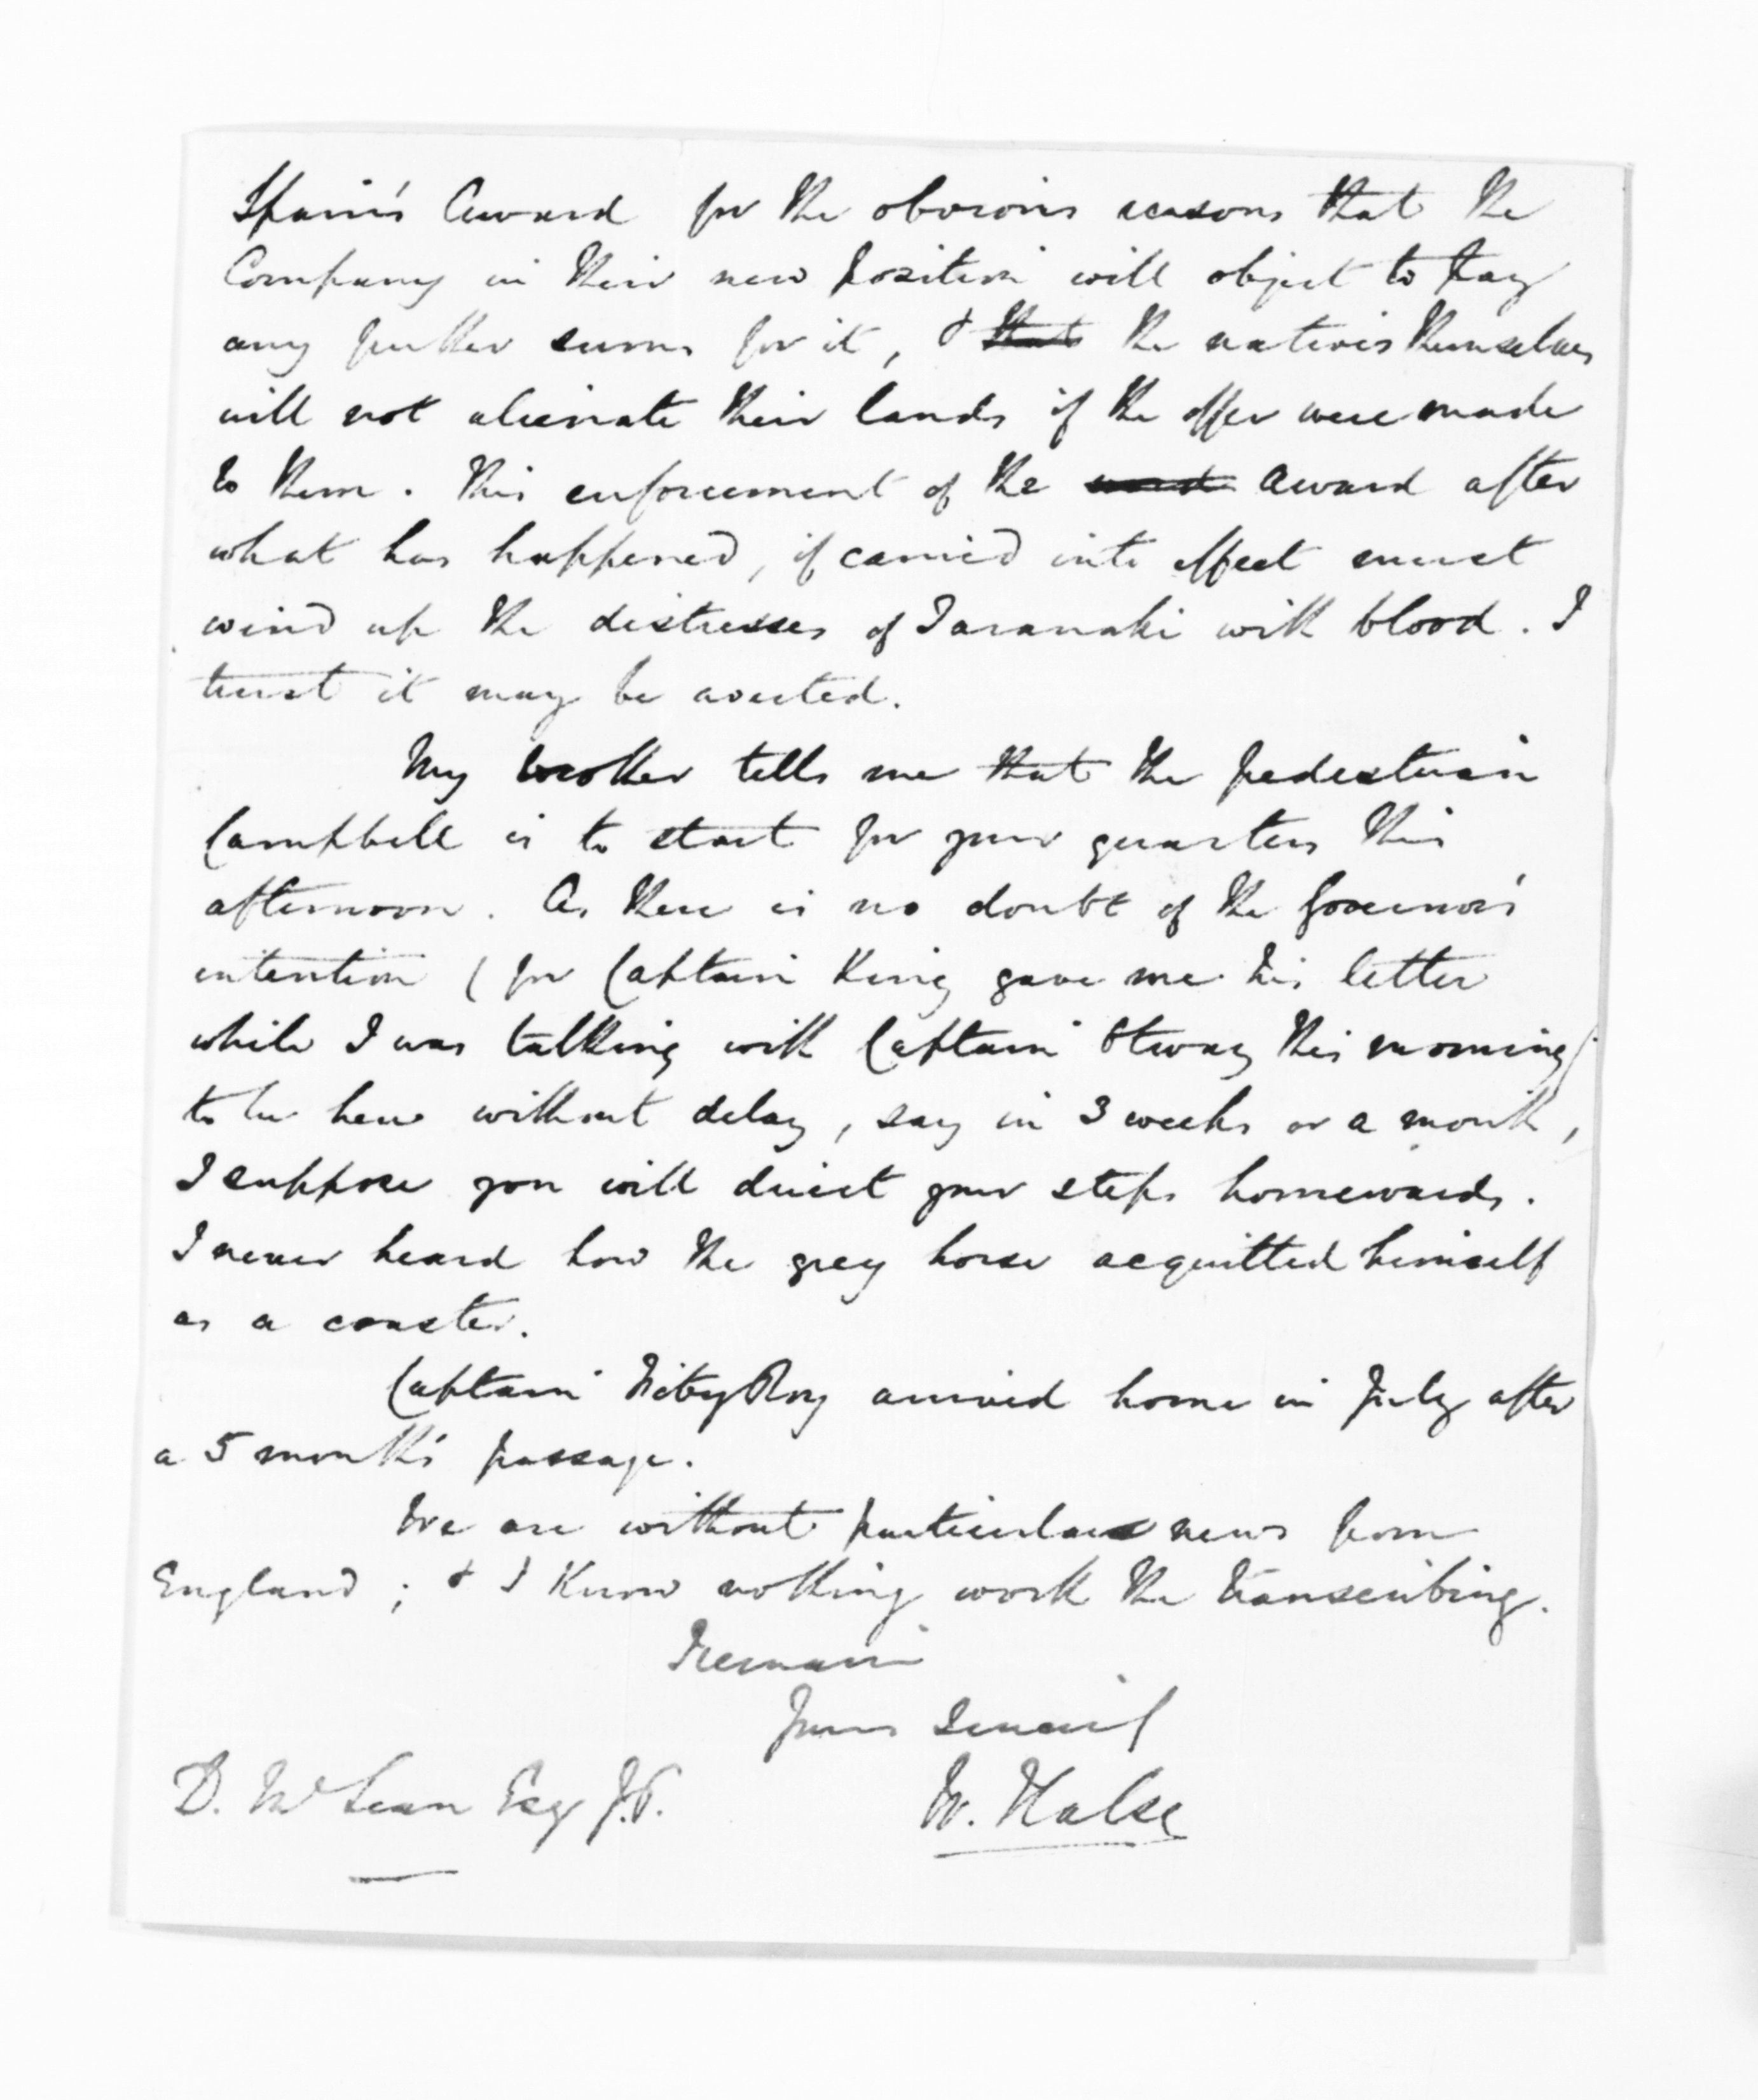 Spain's Award for the obvious reasons that the
Company in their new position will object to pay
any further sums for it, & that the natives themselves
will not alienate their lands if the offer were made
to them. This enforcement of the award after
what has happened, if carried into effect must
wind up the distresses of Taranaki with blood. I
trust it may be averted.
My brother tells me that the pedestrian
Campbell is to start for your quarters this
afternoon. As there is no doubt of the Governor's
intention (for Captain King gave me his letter
while I was talking with Captain Otway this morning)
to be here without delay, say in 3 weeks or a month,
I suppose you will direct your steps homewards.
I never heard how the grey horse acquitted himself
as a coaster.
Captain FitzRoy arrived home in July after
a 5 month's passage.
We are without particular news from
England; & I know nothing worth the transcribing.
I remain
Yours sincerely
D. McLean Esq J.P. W. Halse